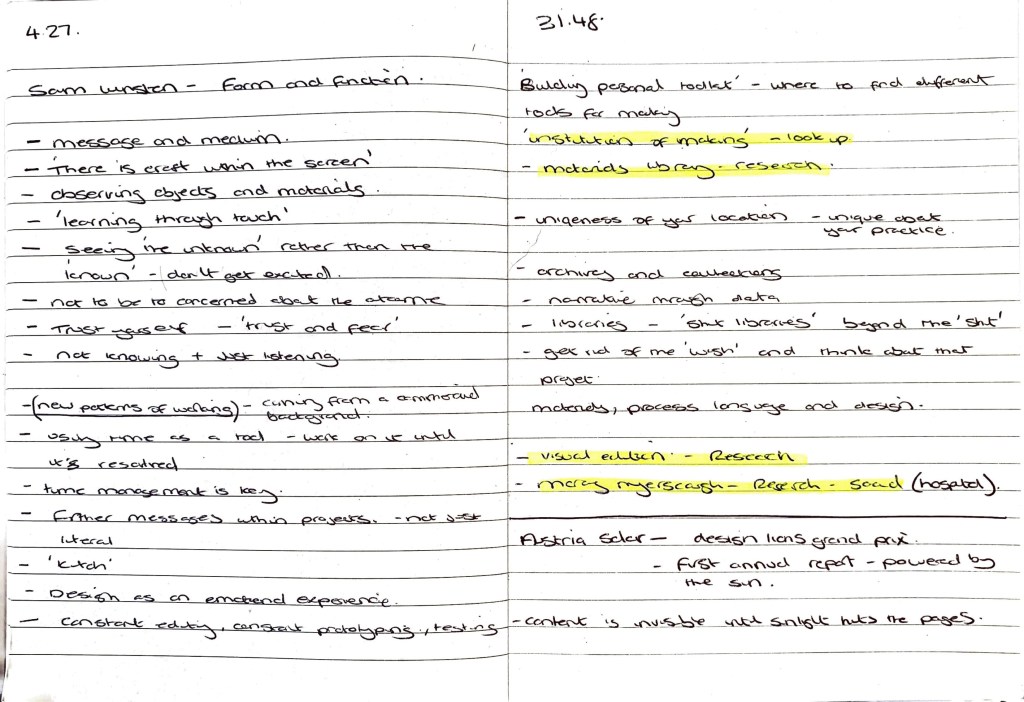 4.27.
Sam Winston - Form and Function.
- message and medium.
- 'There is craft within the screen'
- observing objects and materials.
- 'learning through touch'
- seeing 'the unknown' rather than the
'known' - (don't get excited).
- not to be to concerned about the outcome
- Trust yourself - 'trust and fear'
- not knowing + just listening.
- (new patterns of working) - coming from a commercial
background.
- using time as a tool - work on it until
it's resolved
- time management is key.
- Further messages within projects. - not just
literal
- 'kitch'
- Design as an emotional experience.
- constant editing, constant prototyping, testing
31.48.
'Building personal toolkit' - where to find different
tools for making
'institution of making' - look up
- materials library - research.
- uniqeness of your location - unique about
your practice.
- archives and collections
- narrative through data
- libraries - 'shit libraries' beyond the 'shit'
- get rid of the 'wish' and think about that
project.
materials, process language and design.
- visual edition. - Research
- morag myerscough - Research - social (hospital).
Austria Solar - design lions grand prix.
- first annual report - powered by
the sun.
- content is invisible until sunlight hits the pages.